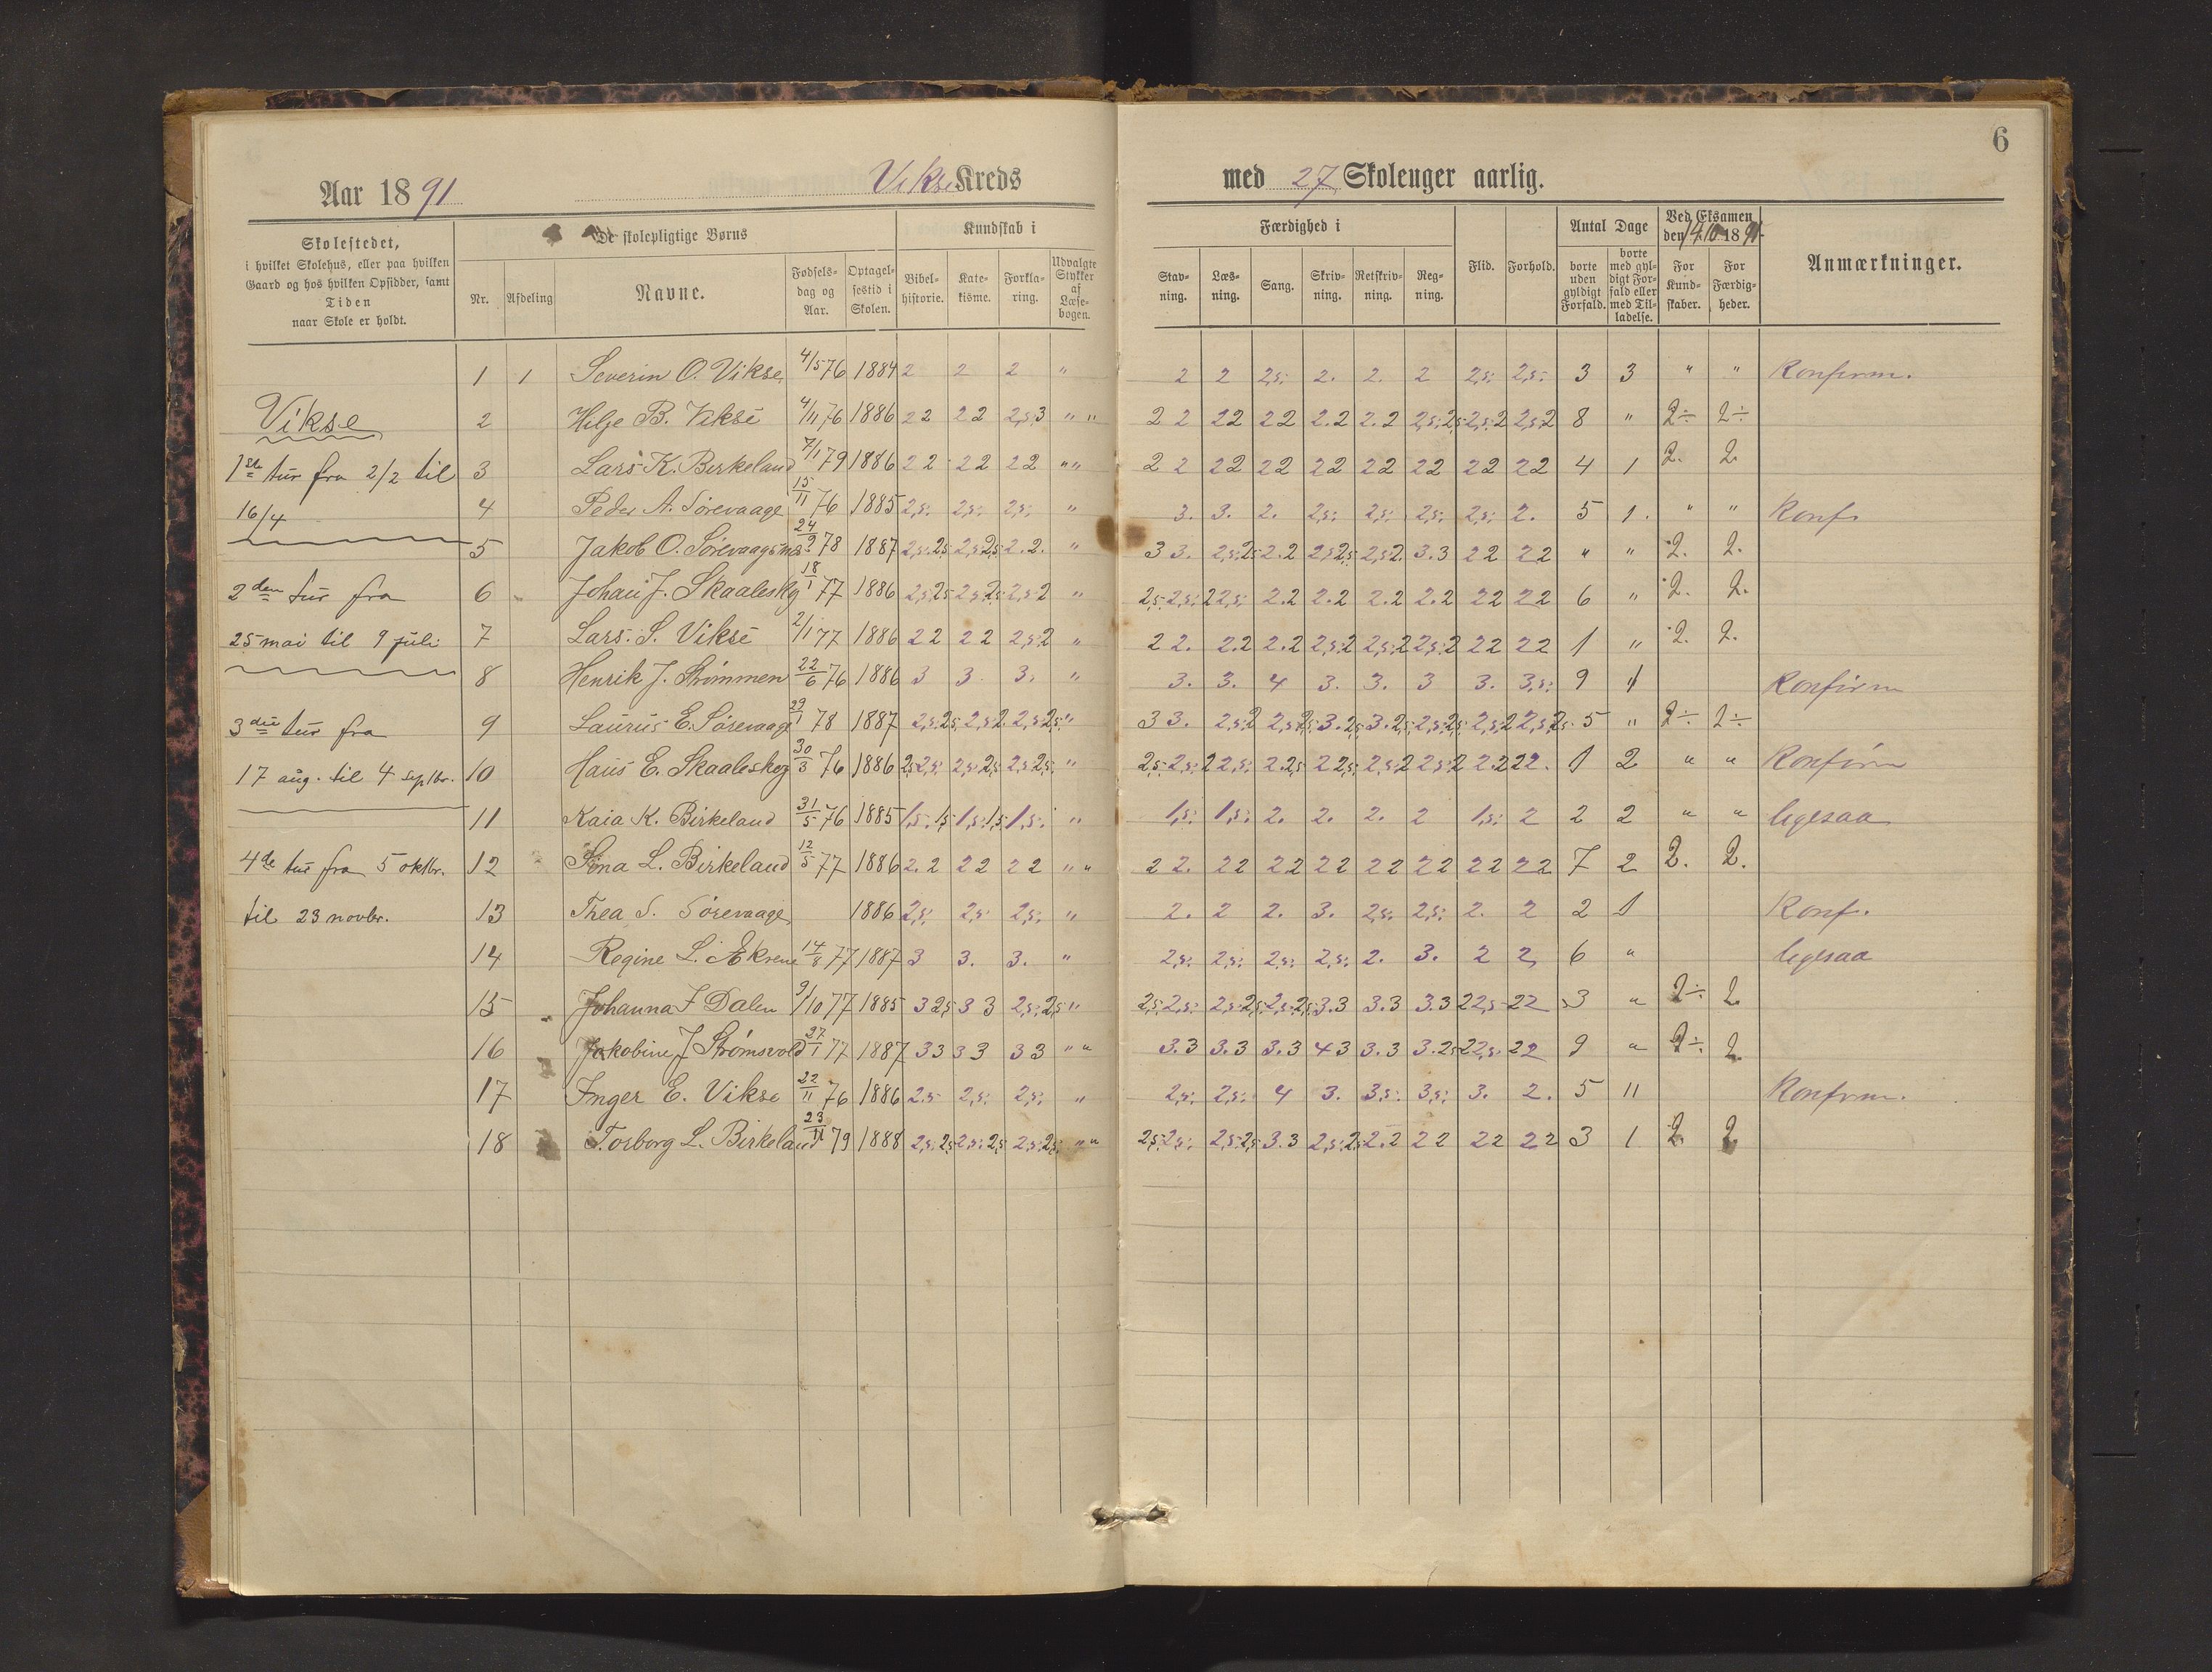 6
Aar 1891 Vikse Kreds med 27 Skoleuger aarlig.
Skolestedet,
i hvilket Skolehus, eller paa hvilken
Gaard og hos hvilken Opsidder, samt
Tiden
naar Skole er holdt.
De skolepligtige Børns
Nr. Afdeling Navne. Fødsels-dag og Aar. Optagel-sestid i Skolen.
Kundskab i
Bibel-historie. Kate-kisme. Forkla-ring. Udvalgte Stykker af Læse-bogen.
Færdighed i
Stav-ning. Læs-ning. Sang. Skriv-ning. Retskriv-ning. Reg-ning. Flid. Forhold.
Antal Dage
borte uden gyldigt Forfald. borte med gyl-digt For-fald eller med Til-ladelse.
Ved Eksamen den 14/10 1891.
For Kund-skaber. For Færdig-heder.
Anmærkninger.
1 1 Severin O. Vikse 4/5 76 1884 2 2 2 " 2 2 2,5: 2. 2. 2 2,5: 2,5: 3 3 " " Konfirm.
Vikse 2 Hilje B. Vikse 4/11 76 1886 2 2 2 2 2,5 3 " " 2 2 2 2 2 2 2.2 2.2 2,5: 2,5 2,5: 2 2,5 2 8 " 2÷ 2÷
1ste tur fra 2/2 til 3 Lars K. Birkeland 7/1 79 1886 2 2 2 2 2 2 " " 2 2 2 2 2 2 2 2 2 2 2 2 2 2 2 2 4 1 2. 2.
16/4 4 Peder A. Sørevaage 15/11 76 1885 2,5: 2,5: 2,5: " 3. 3. 2. 2,5: 2,5: 2,5: 2,5: 2. 5 1. " " Konf.
5 Jakob O. Sørevaagsnes 24/9 78 1887 2,5: 2,5 2,5: 2,5 2. 2. " 3 3. 2,5: 2,5 2.2 2,5 2,5 2,5: 2. 3.3 2 2 2 2 " " 2. 2.
2den tur fra 6 Johan J. Skaaleskog 18/1 77 1886 2,5: 2,5 2,5: 2,5 2,5: 2 " 2,5: 2,5: 2 2,5: 2.2 2.2 2.2 2.2 2 2 2 2 6 " 2. 2.
25 mai til 9 juli 7 Lars S. Vikse 2/1 77 1886 2 2 2 2 2,5: 2 " 2 2. 2.2 2.2 2,5: 2 2,5: 2 2,5: 2 2 2 2 2 1 " 2. 2.
8 Henrik J. Strømmen 22/6 76 1886 3 3. 3. " 3. 3. 4 3. 3. 3 3. 3,5: 9 1 Konfirm
3die tur fra 9 Laurits E. Sørevaage 29/1 78 1887 2,5: 2,5 2,5: 2 2,5: 2,5 " 3 3. 2,5: 2 2,5: 2,5 3. 2,5 3. 2,5 2,5: 2,5 2,5: 2 2,5: 2,5 5 " 2÷ 2÷
17 aug. til 4 septbr. 10 Hans E. Skaaleskog 30/3 76 1886 2,5 2,5: 2,5: 2,5 2,5 2,5: " 2,5: 2,5: 2 2,5: 2.2,5 2 2,5: 2,5: 2 2,5: 2 2.2 2 2. 1 2 " " Konfirm
11 Kaia K. Birkeland 31/5 76 1885 1,5: 1,5 1,5: 1,5 1,5: " 1,5: 1,5: 2. 2. 2. 2 1,5: 2 2 2 " " ligesaa
4de tur fra 5 oktbr. 12 Sina L. Birkeland 12/5 77 1886 2. 2 2 2 2 2 " " 2 2. 2 2 2 2 2 2 2 2 2 2 2 2 2 2 7 2 2. 2.
til 23 novbr. 13 Thea S. Sørevaage 1886 2,5: 2,5: 2,5: " 2. 2 2. 3. 2,5: 2,5: 2. 2 2 1 Konf.
14 Regine L. Ekrene 14/8 77 1887 3 3. 3. " 2,5: 2,5: 2,5: 2,5: 2. 3. 2 2 6 " ligesaa
15 Johanna J Dalen 9/10 77 1885 3 2,5 3 3 2,5: 2,5 " 2,5: 2,5: 2,5: 2,5 2,5: 2,5 3.3 3.3 3.3 2 2,5 2 2 3 " 2÷ 2
16 Jakobine J Strømsvold 27/1 77 1887 3 3 3 3 3 3 " " 3.3 3.3 3.3 4 3 3.3 3.2,5 2 2,5: 2 2 9 " 2÷ 2
17 Inger E. Vikse 22/11 76 1886 2,5 2,5: 2,5: " 2,5: 2,5: 4 3. 3,5: 3,5: 3. 2. 5 11 Konfirm.
18 Torborg L. Birkeland 23/11 79 1888 2,5: 2,5 2,5: 2,5 2,5: 2,5: " " 2,5: 2,5: 2,5: 2,5 3.3 2,5: 2,5 2.2 2 2 2 2 2 2 3 1 2. 2